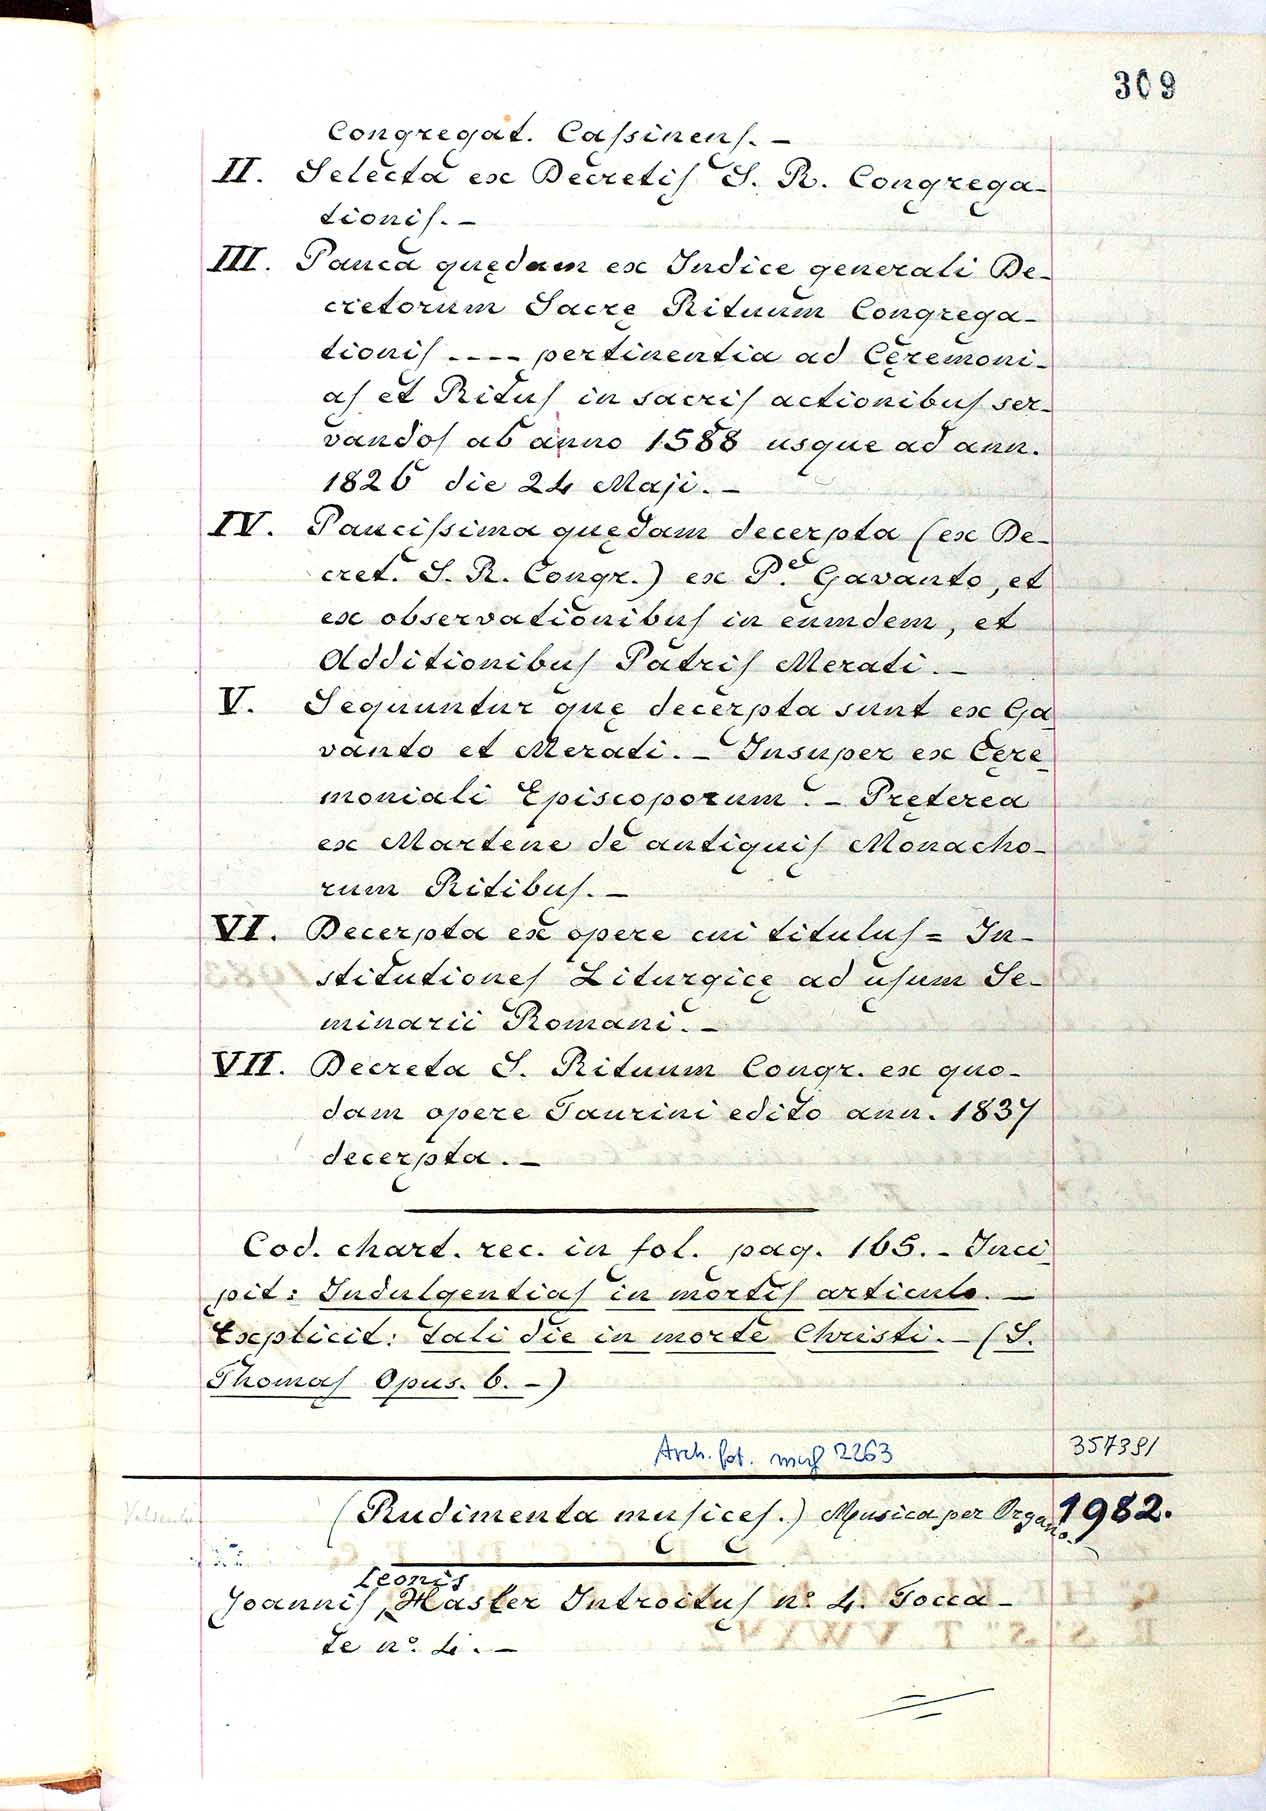 309
Congregat. Caſsinenſ. –
II. Selecta ex Decretiſ S. R. Congrega-
tioniſ. –
III. Pauca quędam ex Indice generali De-
cretorum Sacrę Rituum Congrega-
tioniſ ---- pertinentia ad Cęremoni-
aſ et Rituſ in sacriſ actionibuſ ser-
vandoſ ab anno 1588 usque ad ann.
1826 die 24 Maji. –
IV. Pauciſsima quędam decerpta (ex De-
cret. S. R. Congr.) ex P.e Gavanto, et
ex observationibuſ in eumdem, et
Additionibuſ Patriſ Merati. –
V. Sequuntur quę decerpta sunt ex Ga-
vanto et Merati. – Insuper ex Cęre-
moniali Episcoporum. – Pręterea
ex Martene de antiquiſ Monacho-
rum Ritibuſ. –
VI. Decerpta ex opere cui tituluſ = In-
stitutioneſ Liturgicę ad uſum Se-
minarii Romani. –
VII. Decreta S. Rituum Congr. ex quo-
dam opere Taurini edito ann. 1837
decerpta. –
Cod. chart. rec. in fol. pag. 165. – Inci-
pit: Indulgentiaſ in mortiſ articulo. –
Explicit: tali die in morte Christi. – (S.
Thomaſ Opus. 6. –)
Arch. fot. 2263
357391
(Rudimenta muſiceſ.) Musica per Organo. 1982.
Leonis
Joanniſ, Hasler Introituſ n.º 4. Tocca-
te n.º 4. –